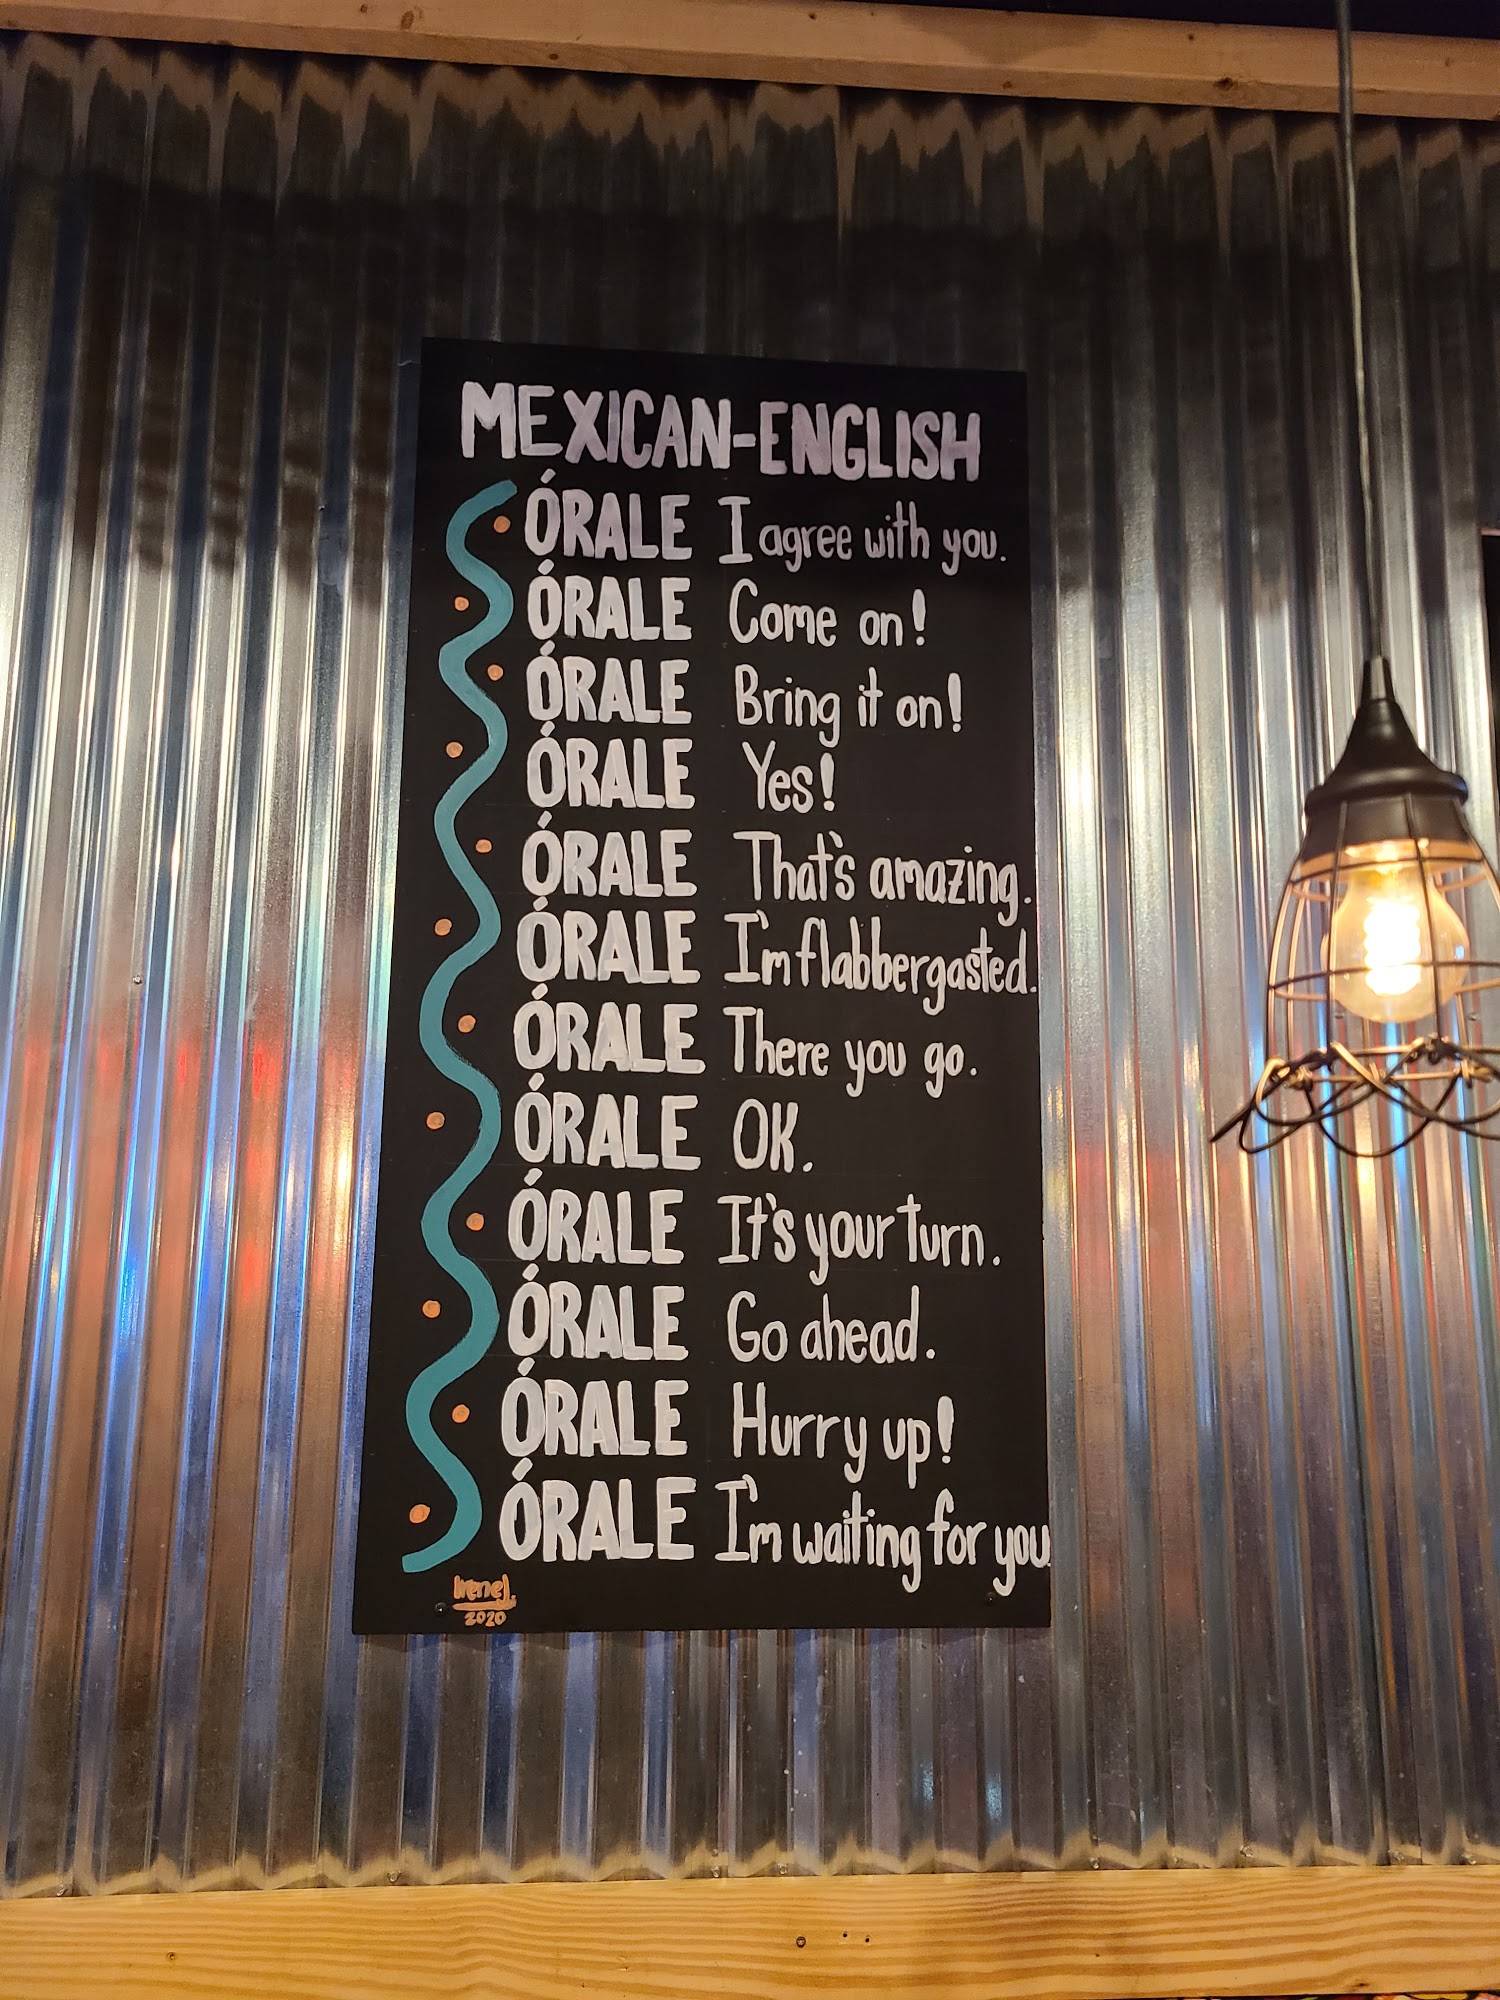 MEXICAN-ENGLISH
ÓRALE I agree with you.
ÓRALE Come on!
ÓRALE Bring it on!
ÓRALE Yes!
ÓRALE That's amazing.
ÓRALE I'm flabbergasted.
ÓRALE There you go.
ÓRALE OK.
ÓRALE It's your turn.
ÓRALE Go ahead.
ÓRALE Hurry up!
ÓRALE I'm waiting for you.
IreneJ.
2020